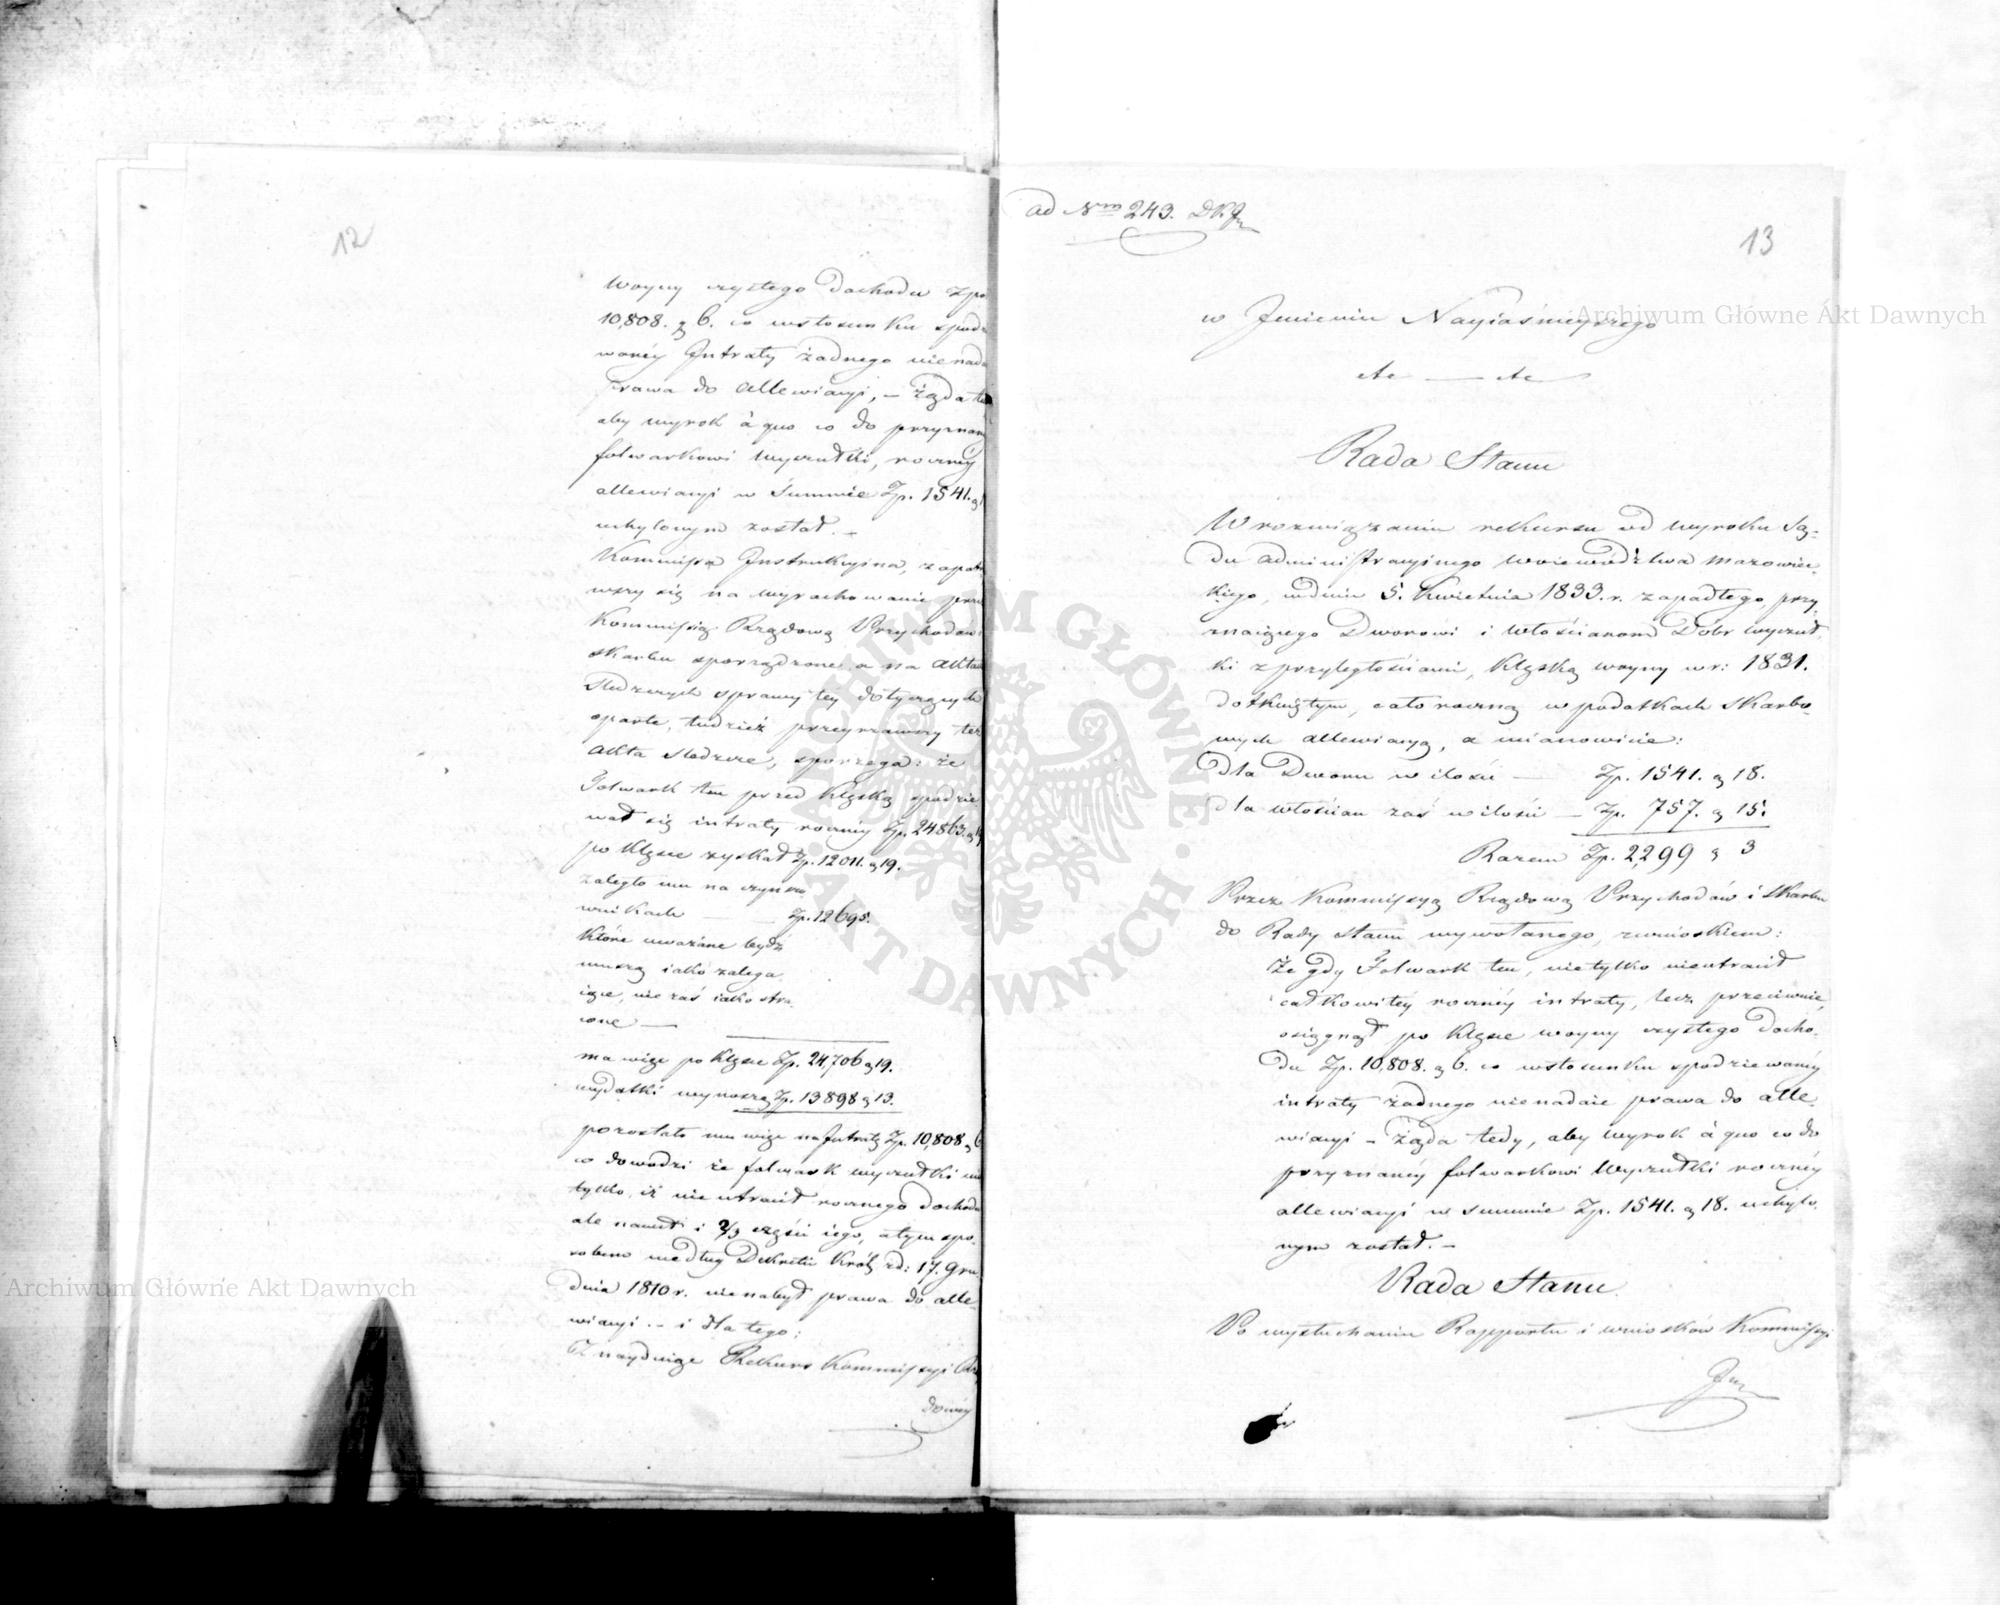 12
woyny czystego dochodu Zp.
10,808. g 6. co wstosunku spodz
wanéy Intraty żadnego nienada
prawa do allewiacyi, – żąda te
aby wyrok à quo co do przyznan
folwarkowi Wyczułki, roczney
allewiacyi w Summie Zp. 1541. g
uchylonym został. –
Kommissya Instrukcyina, zapatr
wszy się na wyrachowanie prze
Kommissyą Rządową Przychodów
Skarbu sporządzone a na aktach
śledczych sprawy tey dotyczących
oparte, tudzież przeyrzawszy też
akta śledcze, spostrzega: że
Folwark ten przed klęską spodzie
wał się intraty roczney Zp. 24863. g
po klęsce zyskał Zp. 12011. g 19.
zaległo mu na czynszo
wnikach — — Zp. 12695.
które uważane bydź
muszą iako zalega
iące, nie zaś iako stra
cone —
ma więc po klęsce Zp. 24,706 g 19.
wydatki wynoszą Zp. 13898 g 13.
pozostało mu więc na Intratę Zp. 10,808 g 6
co dowodzi że folwark Wyczułki nie
tylko, iż nie utracił rocznego dochodu
ale nawet i 2/3 części iego, a tym spo-
sobem według Dekretu Król: zd: 17. Gru
dnia 1810 r. nienabył prawa do alle-
wiacyi. – i dla tego:
Znayduiąc Rekurs Kommissyi Rzą
dowéy
ad Num 243. DKJ
13
w Imieniu Nayiaśnieyszego
etc — etc
Rada Stanu
W rozwiązaniu rekursu od wyroku Są-
du Administracyinego Woiewództwa Mazowiec-
kiego, wdniu 5. Kwietnia 1833. r. zapadłego, przy-
znaiącego Dworowi i Włościanom Dobr Wyczuł-
ki z przyległościami, klęską woyny w r: 1831.
dotkniętym, całoroczną w podatkach Skarbo-
wych allewiacyą, a mianowicie:
Dla Dworu w ilości — Zp. 1541. g 18.
dla włościan zaś w ilości — Zp. 757. g 15.
Razem Zp. 2,299 g 3
Przez Kommissyą Rządową Przychodów i Skarbu
do Rady Stanu wywołanego, zwnioskiem:
Że gdy Folwark ten, nietylko nieutracił
całkowitey roczney intraty, lecz przeciwnie,
osiągnął po klęsce woyny czystego docho-
du Zp. 10,808. g 6. co wstosunku spodziewanéy
intraty żadnego nienadaie prawa do alle-
wiacyi – żąda tedy, aby wyrok à quo co do
przyznanéy folwarkowi Wyczułki roczney
allewiacyi w summie Zp. 1541. g 18. uchylo-
nym został. –
Rada Stanu
Po wysłuchaniu Rapportu i wniosków Kommissyi
Archiwum Główne Akt Dawnych
Archiwum Główne Akt Dawnych
ARCHIWUM GŁÓWNE AKT DAWNYCH